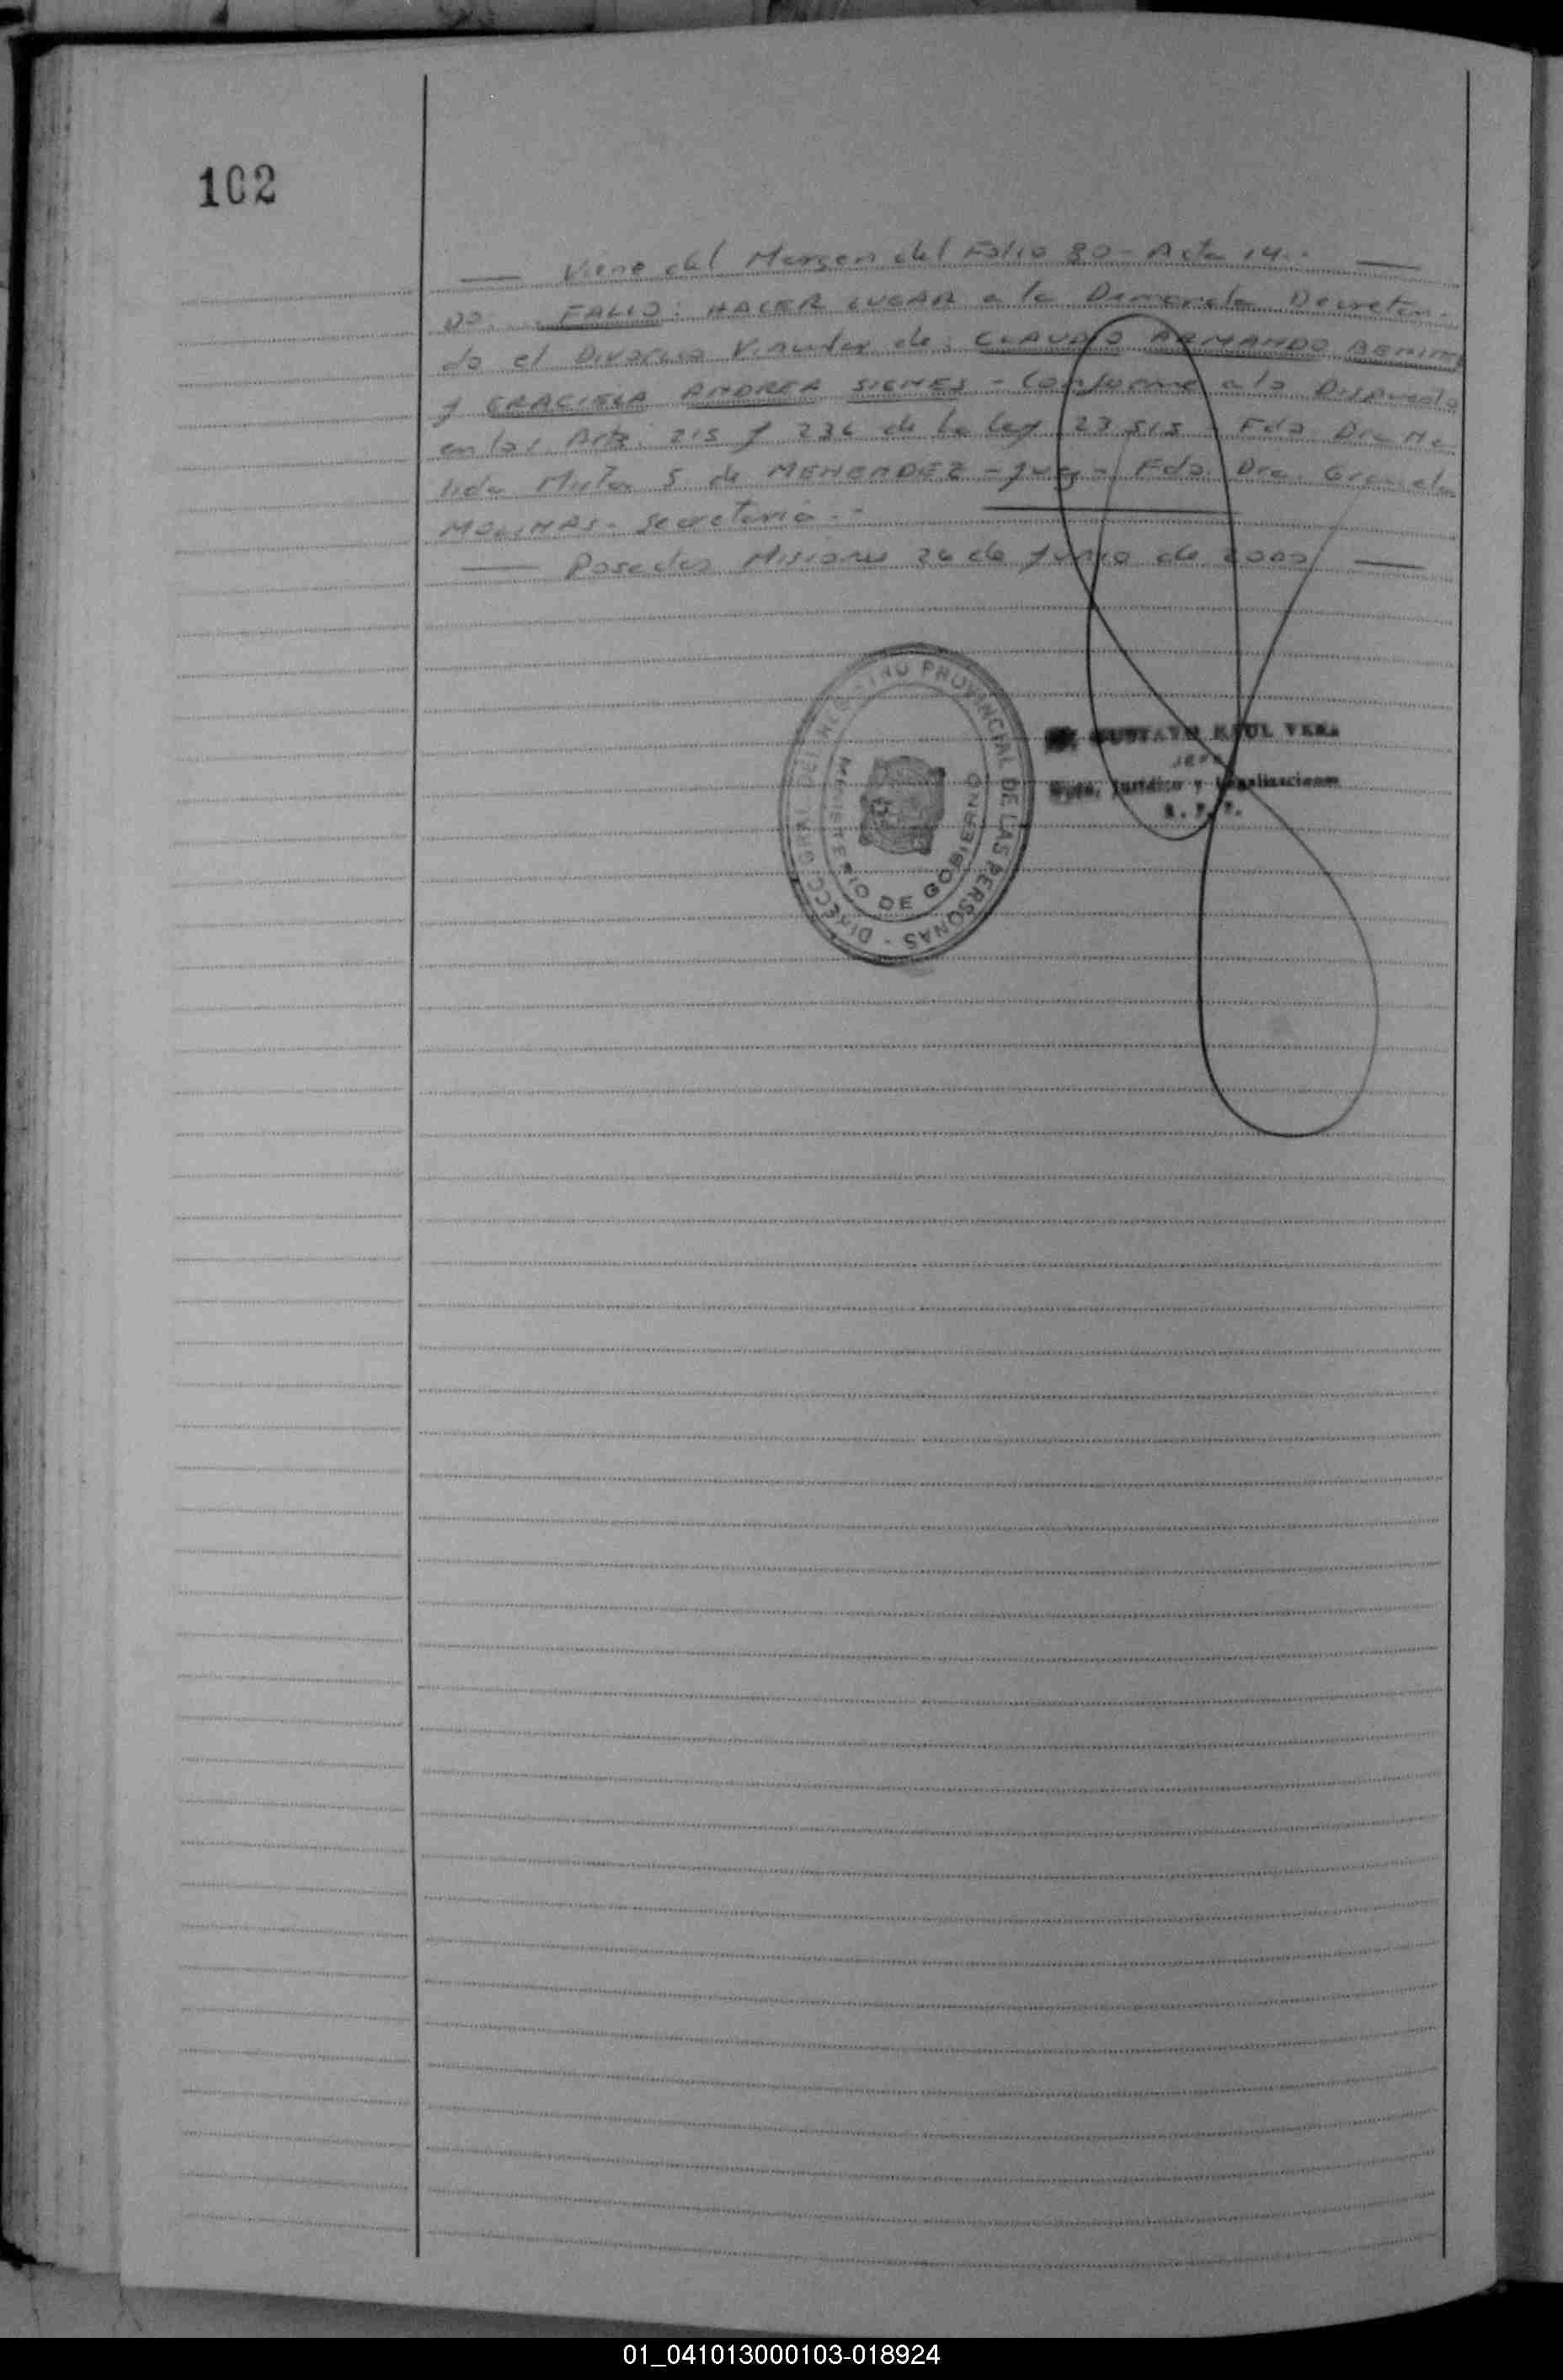 102
Viene del Margen del Folio 80 - Acta 14..
Do. FALLO: HACER LUGAR a la Demanda Decretan-
do el Divorcio Vincular de: CLAUDIO ARMANDO BENITEZ
y GRACIELA ANDREA SIEMES - Conforme a lo Dispuesto
en los Arts. 215 y 236 de la Ley 23.515 - Fdo. Dra
S. de MENENDEZ - Juez - Fdo. Dra. Graciela
MOLINAS - Secretaria --
Posadas Misiones 26 de Junio de 2000
DIRECC. GRAL. DEL REGISTRO PROVINCIAL DE LAS PERSONAS -
MINISTERIO DE GOBIERNO
GUSTAVO RAUL VERA
JEFE
Dpto. Jurídico y Legalizaciones
R. P. P.
01_041013000103-018924